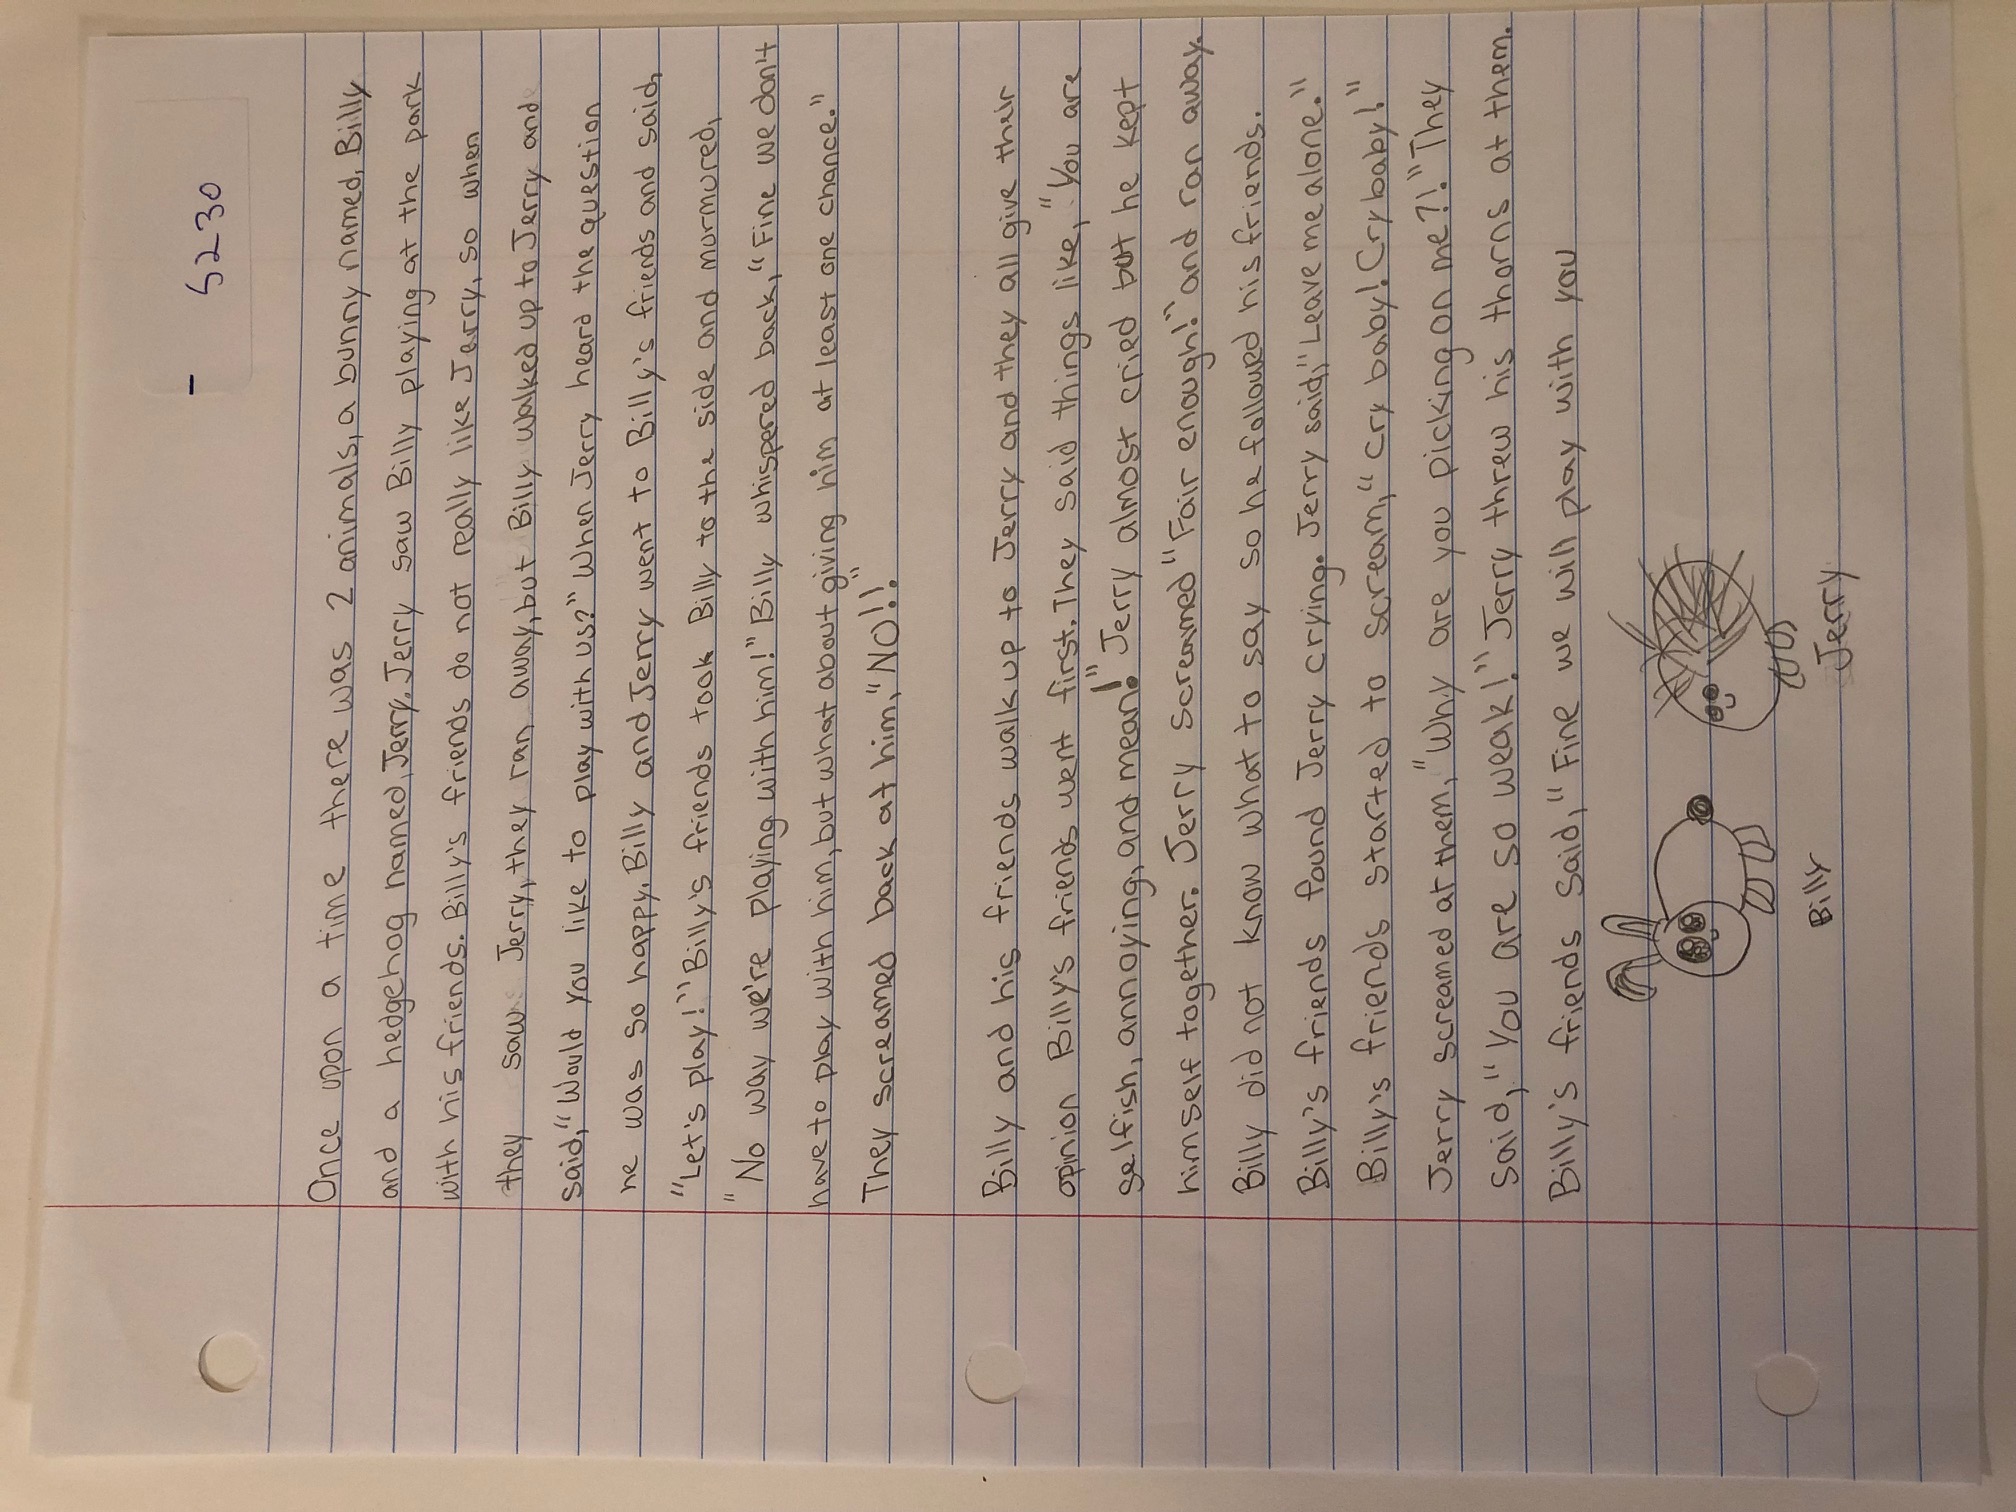 - 5230
Once upon a time there was 2 animals, a bunny named, Billy
and a hedgehog named, Jerry. Jerry saw Billy playing at the park
with his friends. Billy's friends do not really like Jerry, so when
they saw Jerry, they ran away, but Billy walked up to Jerry and
said, "Would you like to play with us?" When Jerry heard the question
he was so happy. Billy and Jerry went to Billy's friends and said,
"Let's play!" Billy's friends took Billy to the side and murmured,
"No way we're playing with him!" Billy whispered back, "Fine we don't
have to play with him, but what about giving him at least one chance."
They screamed back at him, "NO!!"
Billy and his friends walk up to Jerry and they all give their
opinion Billy's friends went first. They said things like, "You are
selfish, annoying, and mean!" Jerry almost cried but he kept
himself together. Jerry screamed "Fair enough!" and ran away.
Billy did not know what to say so he followed his friends.
Billy's friends found Jerry crying. Jerry said, "Leave me alone."
Billy's friends started to scream, "Cry baby! Cry baby!"
Jerry screamed at them, "Why are you picking on me?!" They
said, "You are so weak!" Jerry threw his thorns at them.
Billy's friends said, "Fine we will play with you
Billy
Jerry